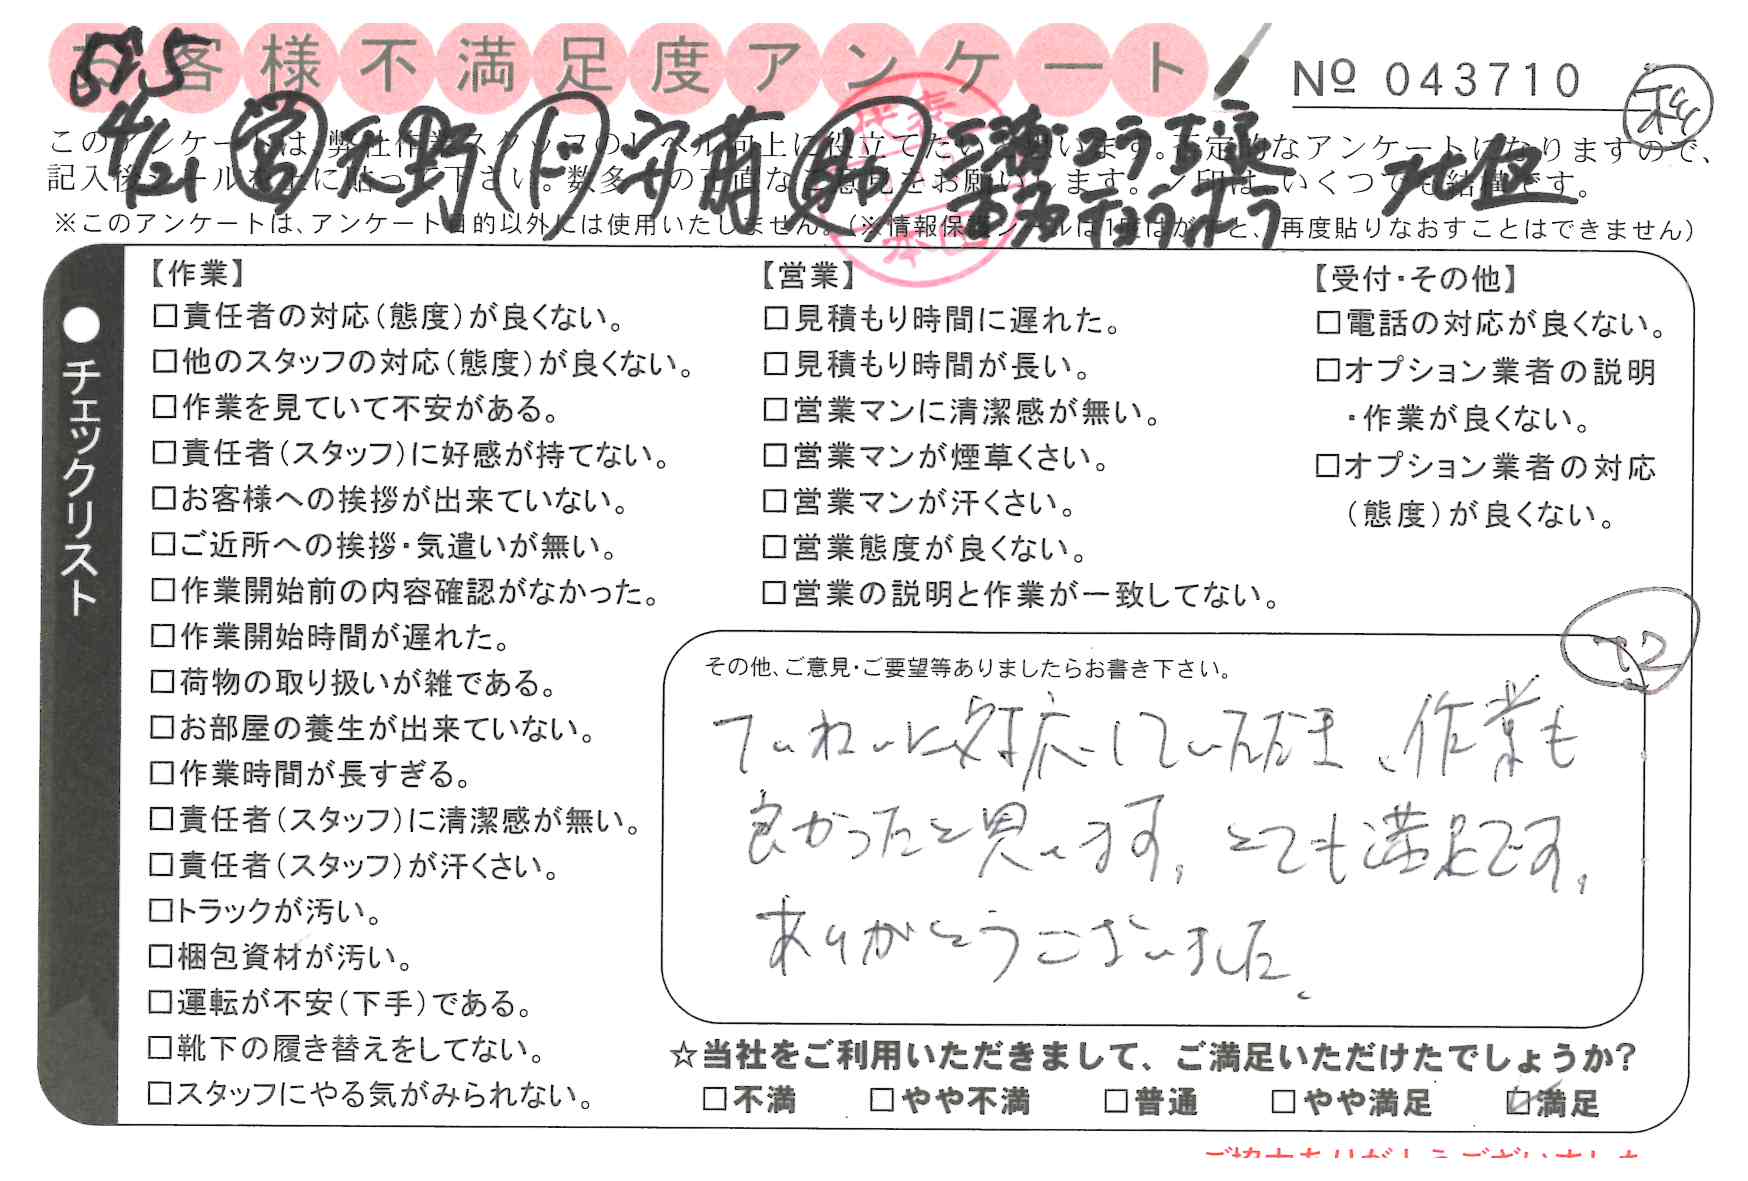 お客様不満足度アンケート
№ 043710
このアンケートは、弊社作業スタッフのレベル向上に役立てたいと思います。否定的なアンケートになりますので、
記入後シールを上に貼って下さい。数多くの正直なご意見をお願いします。✓印は、いくつでも結構です。
※このアンケートは、アンケート目的以外には使用いたしません。(※情報保護シールは1度はがすと、再度貼りなおすことはできません)
4/21 営 天野 ド 守前 助
北区
●チェックリスト
【作業】
□責任者の対応(態度)が良くない。
□他のスタッフの対応(態度)が良くない。
□作業を見ていて不安がある。
□責任者(スタッフ)に好感が持てない。
□お客様への挨拶が出来ていない。
□ご近所への挨拶・気遣いが無い。
□作業開始前の内容確認がなかった。
□作業開始時間が遅れた。
□荷物の取り扱いが雑である。
□お部屋の養生が出来ていない。
□作業時間が長すぎる。
□責任者(スタッフ)に清潔感が無い。
□責任者(スタッフ)が汗くさい。
□トラックが汚い。
□梱包資材が汚い。
□運転が不安(下手)である。
□靴下の履き替えをしてない。
□スタッフにやる気がみられない。
【営業】
□見積もり時間に遅れた。
□見積もり時間が長い。
□営業マンに清潔感が無い。
□営業マンが煙草くさい。
□営業マンが汗くさい。
□営業態度が良くない。
□営業の説明と作業が一致してない。
【受付・その他】
□電話の対応が良くない。
□オプション業者の説明
・作業が良くない。
□オプション業者の対応
(態度)が良くない。
その他、ご意見・ご要望等ありましたらお書き下さい。
ていねいに対応していただき、作業も
良かったと思います。とても満足です。
ありがとうございました。
☆当社をご利用いただきまして、ご満足いただけたでしょうか?
□不満 □やや不満 □普通 □やや満足 ☑満足
ご協力ありがとうございました